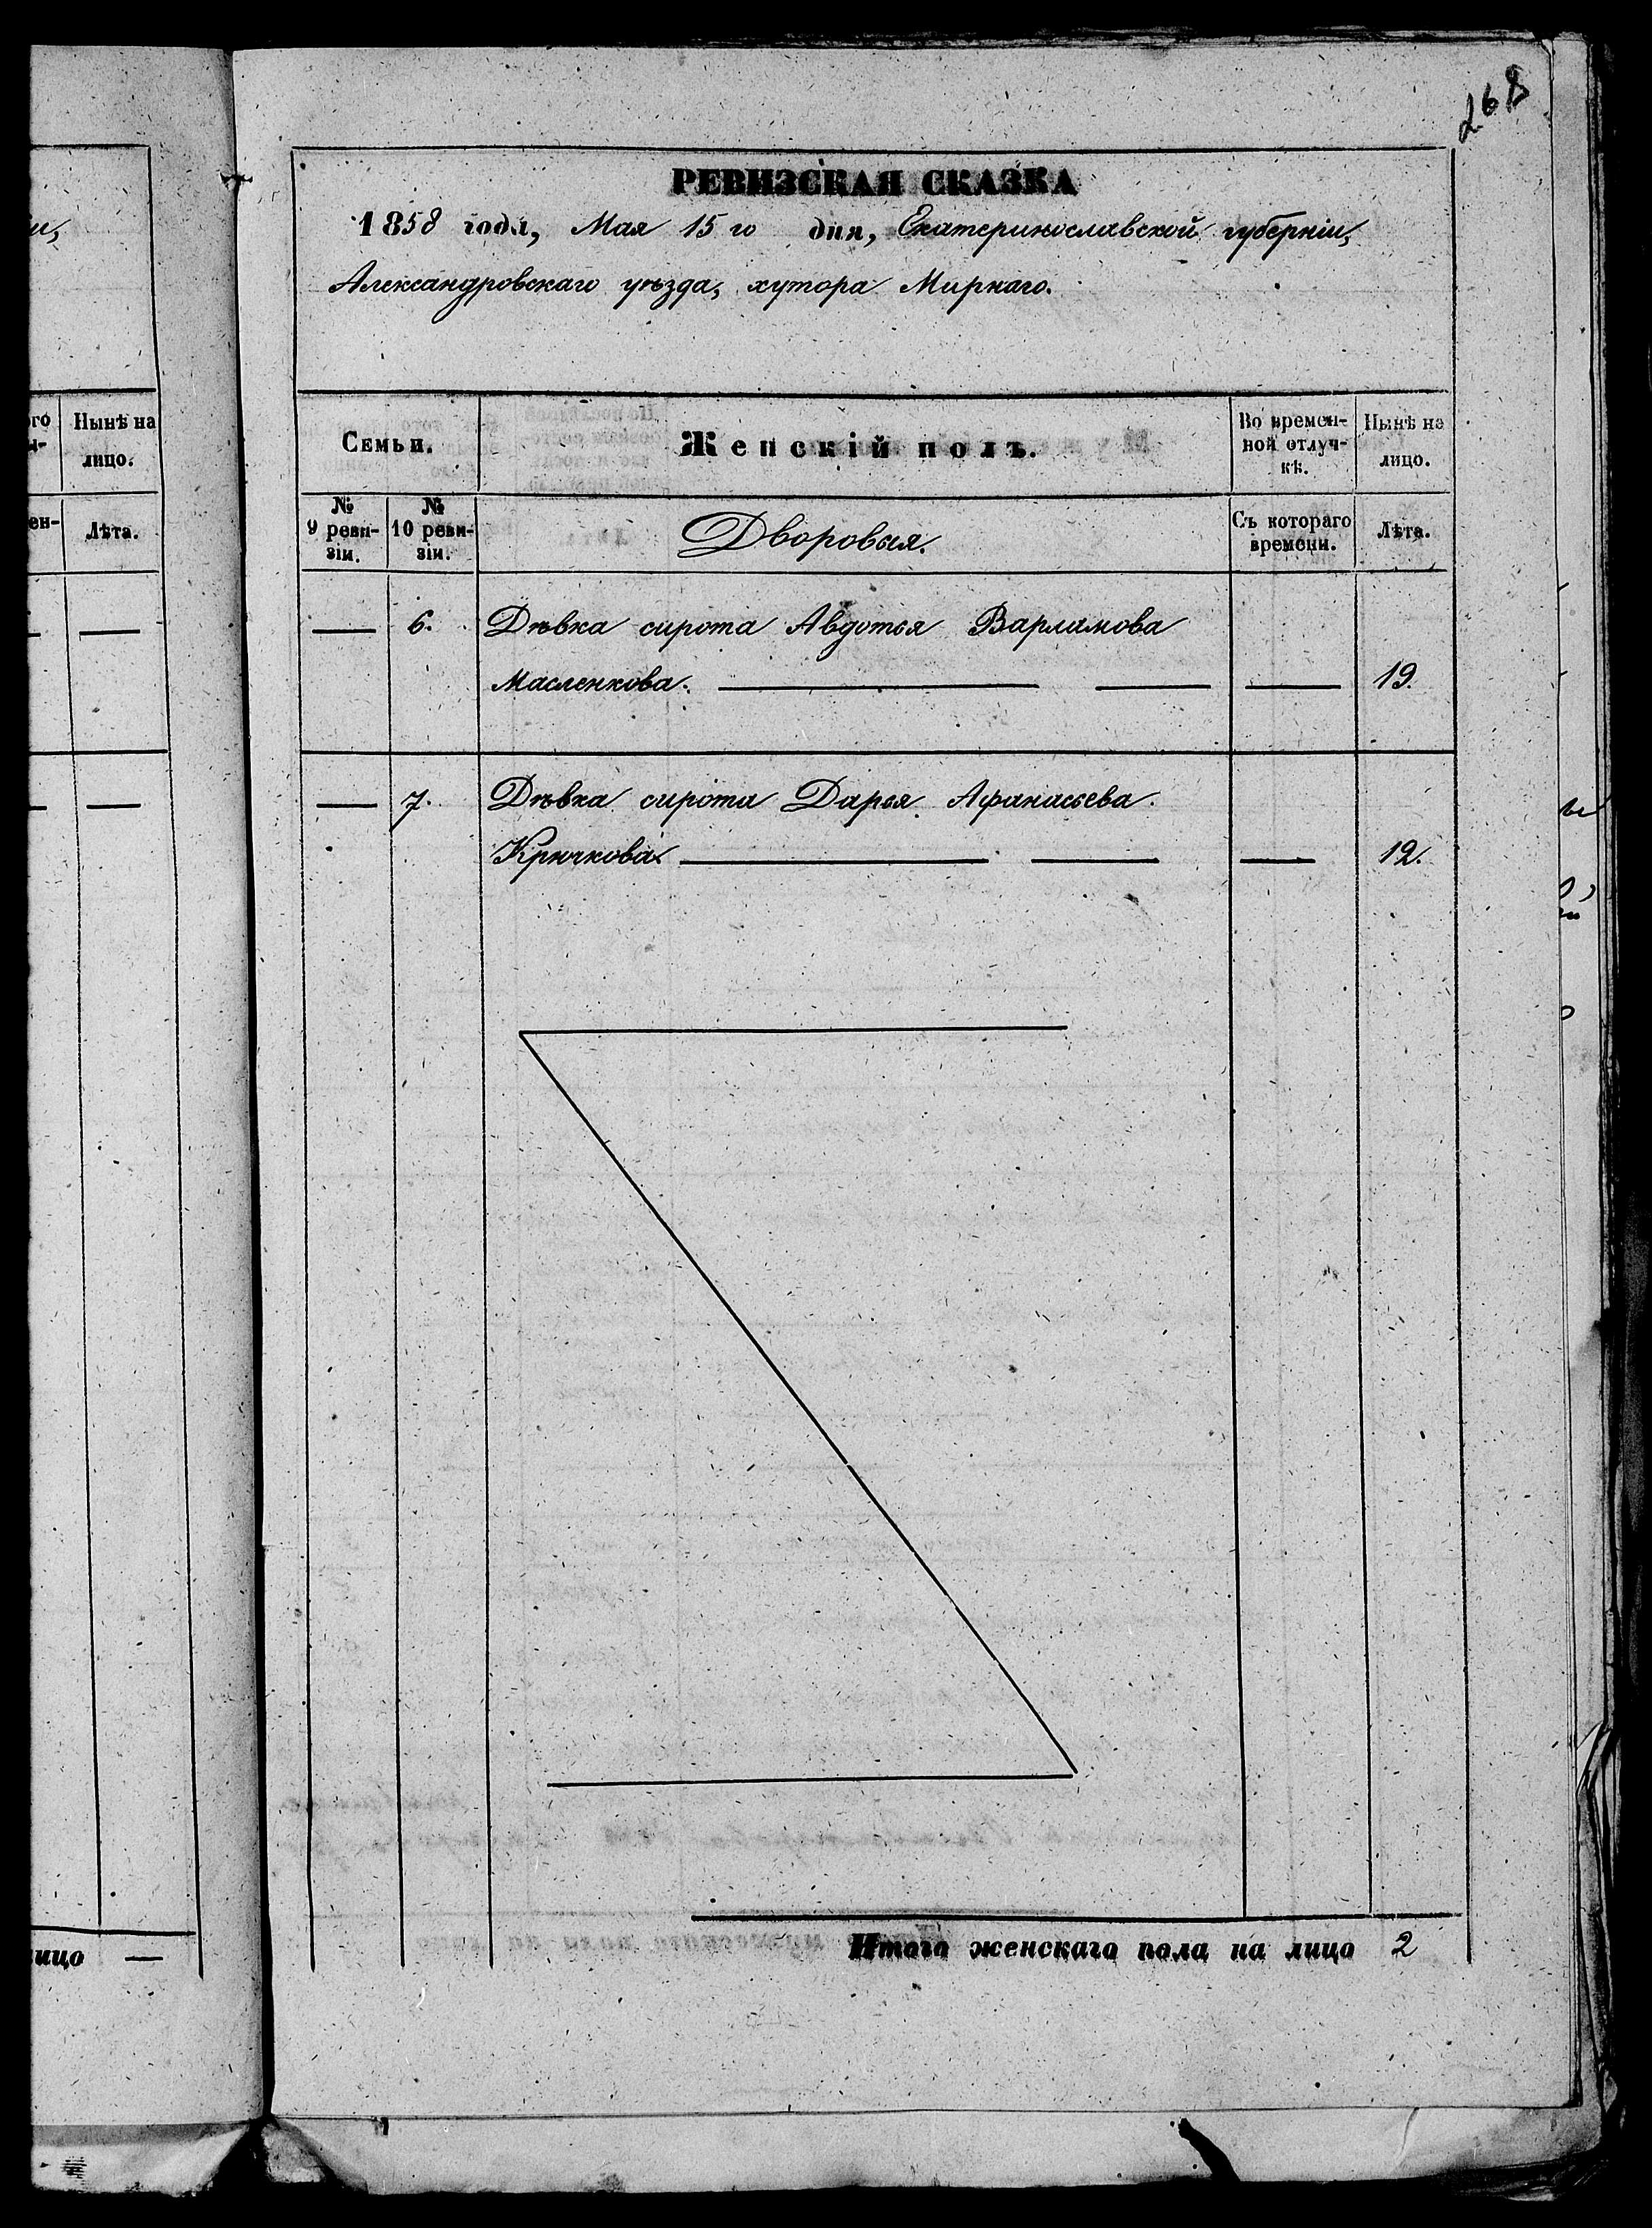 268
РЕВИЗСКАЯ СКАЗКА
1858 года, Мая 15 го дня, Екатеринославской губерніи,
Александровскаго уѣзда, хутора Мирнаго.
Нынѣ на
лицо.
Лѣта.
Семьи.
Женскій полъ.
Во времен-
ной отлуч-
кѣ.
Нынѣ на
лицо.
№
9 реви-
зіи.
№
10 реви-
зіи.
Дворовыя.
Съ котораго
времени.
Лѣта.
6. Дѣвка сирота Авдотья Варламова
Масленкова. 19.
7. Дѣвка сирота Дарья Афанасьева
Крючкова 12.
Итого женскаго пола на лицо 2